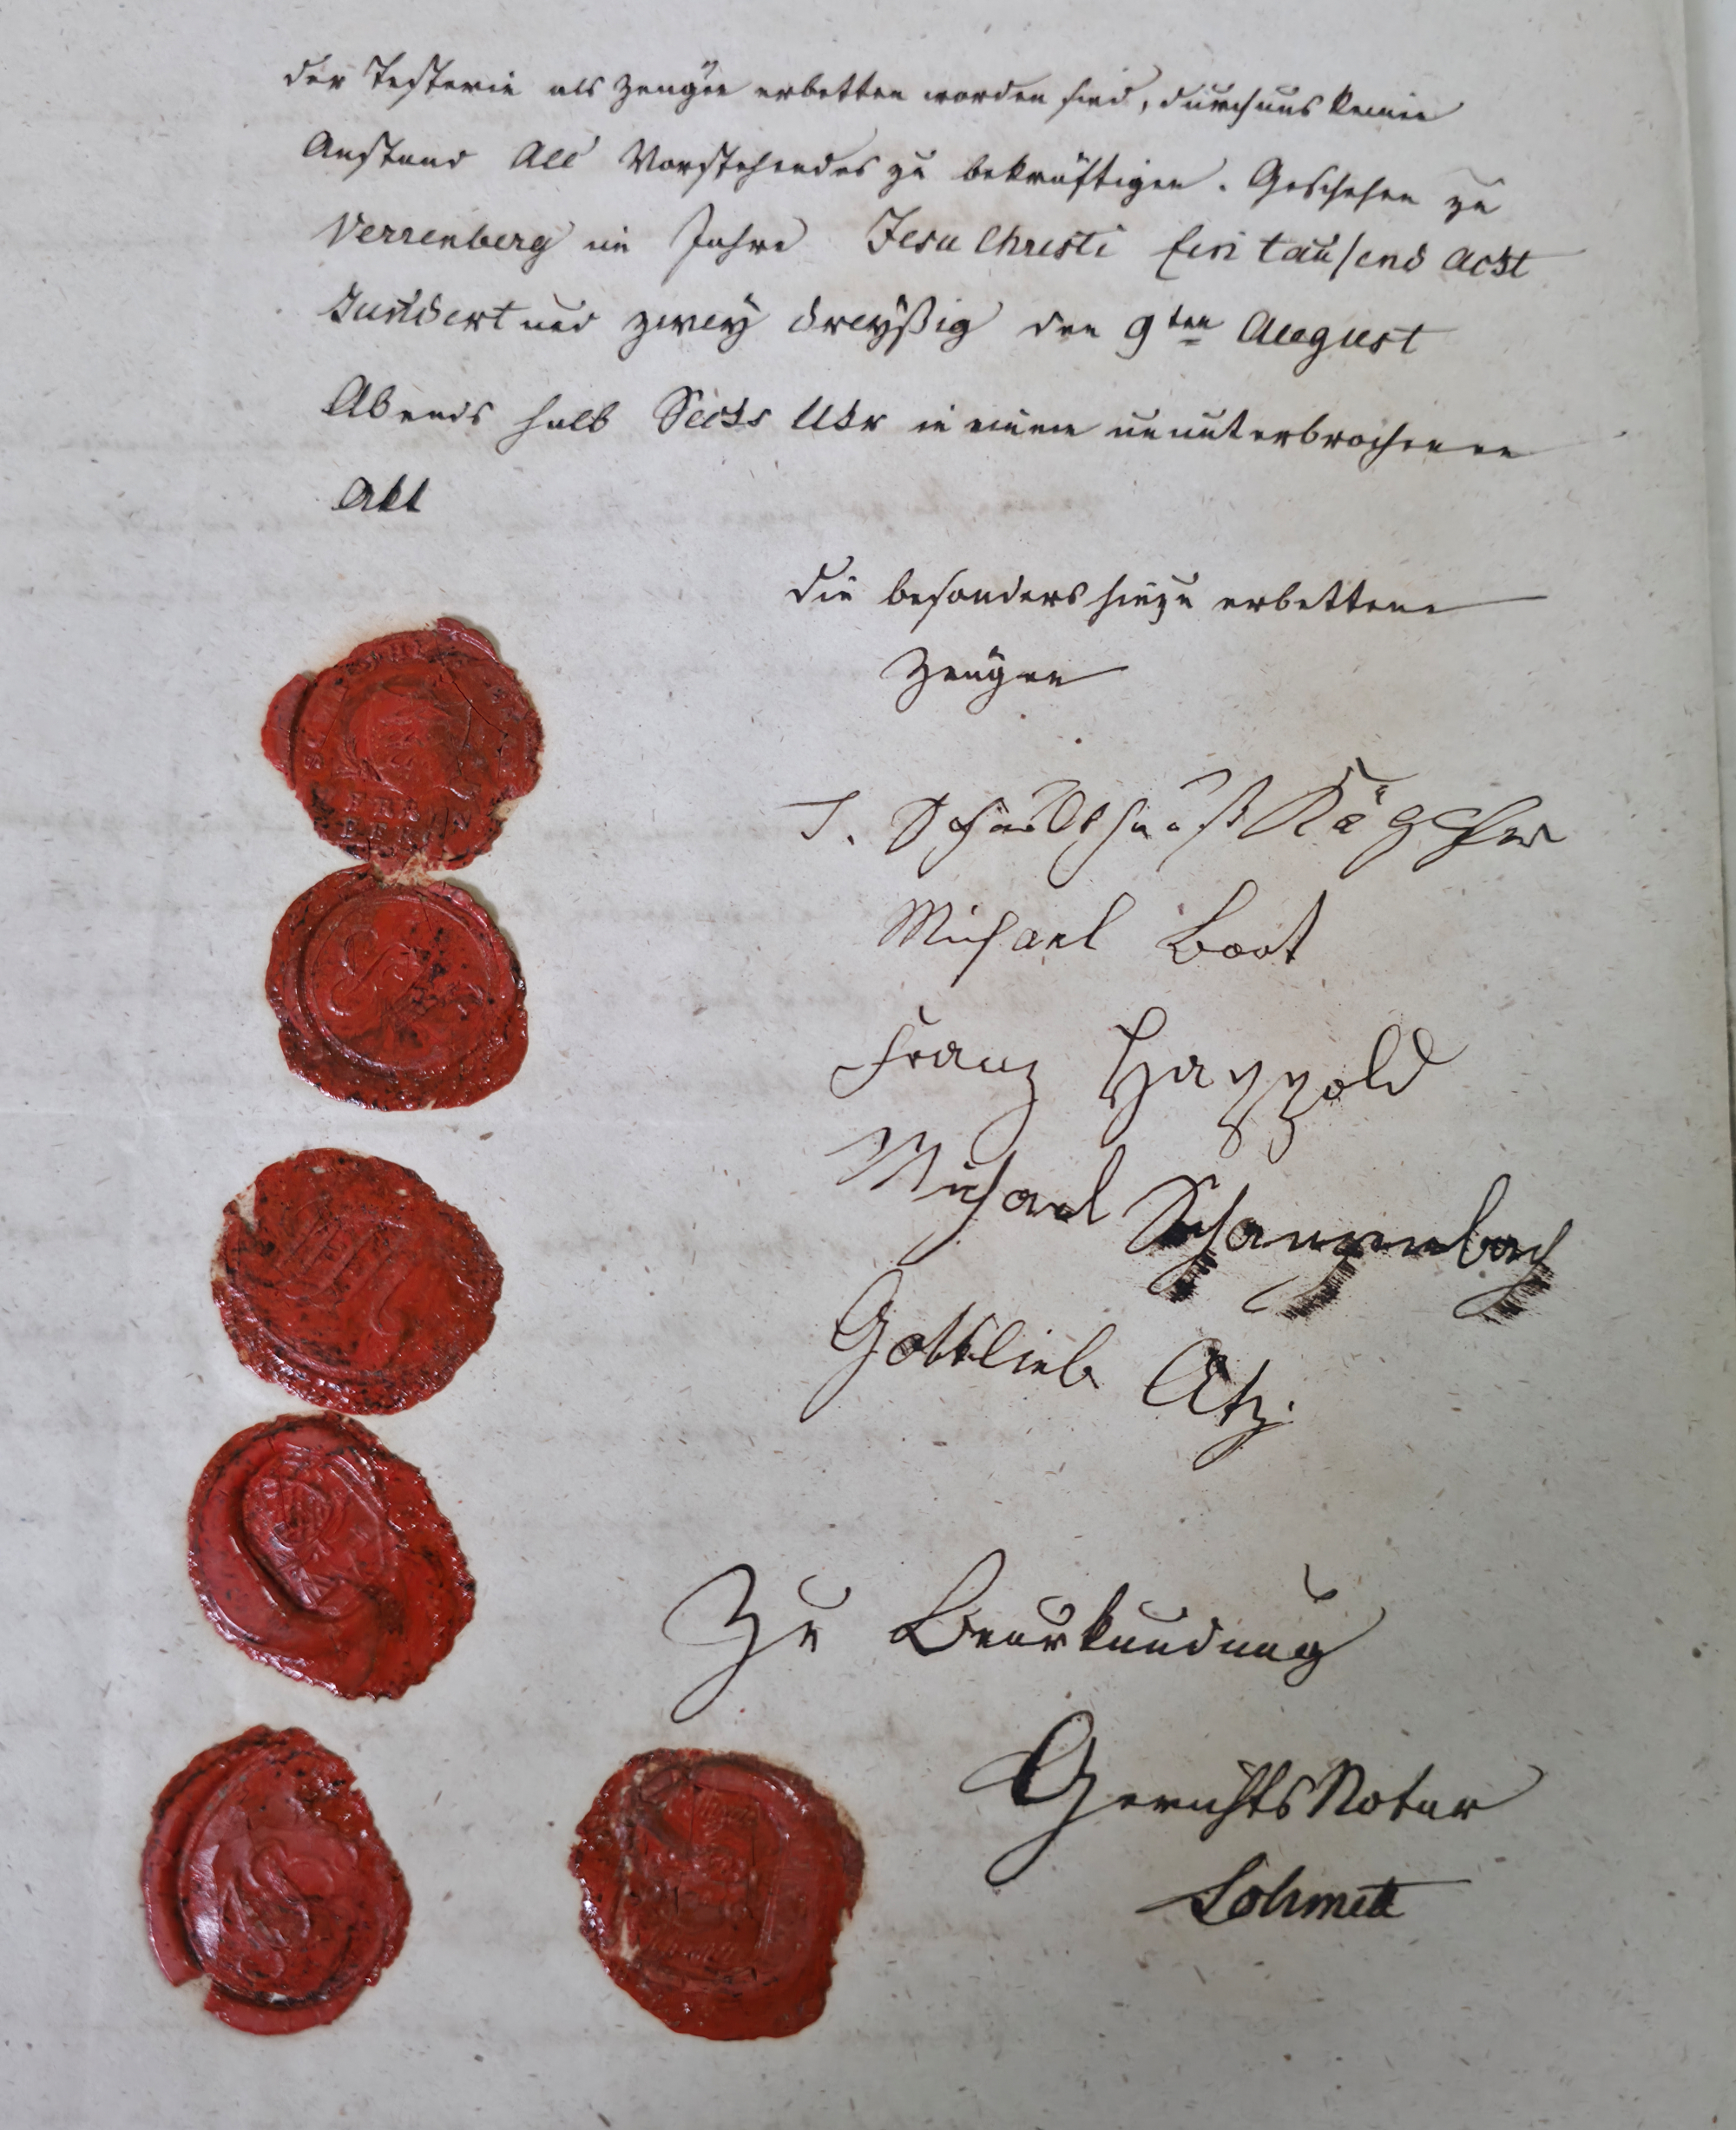 der Testerin als Zeugen erbetten worden sind, durchaus keinen
Anstand All Vorstehendes zu bekräftigen. Geschehen zu
Verrenberg im Jahre Jesu Christi Ein tausend acht
hundert und zwey dreyßig den 9ten August
Abends halb Sechs Uhr in einem ununterbrochenen
Akt
die besonders hinzu erbettene
Zeugen
T. Schuldtheiß
Michael Boot
Franz Happold
Michael Schauppenbach
Gottlieb Atz.
FREI
BERLIN
Zu Beurkundung
GerichtsNotar